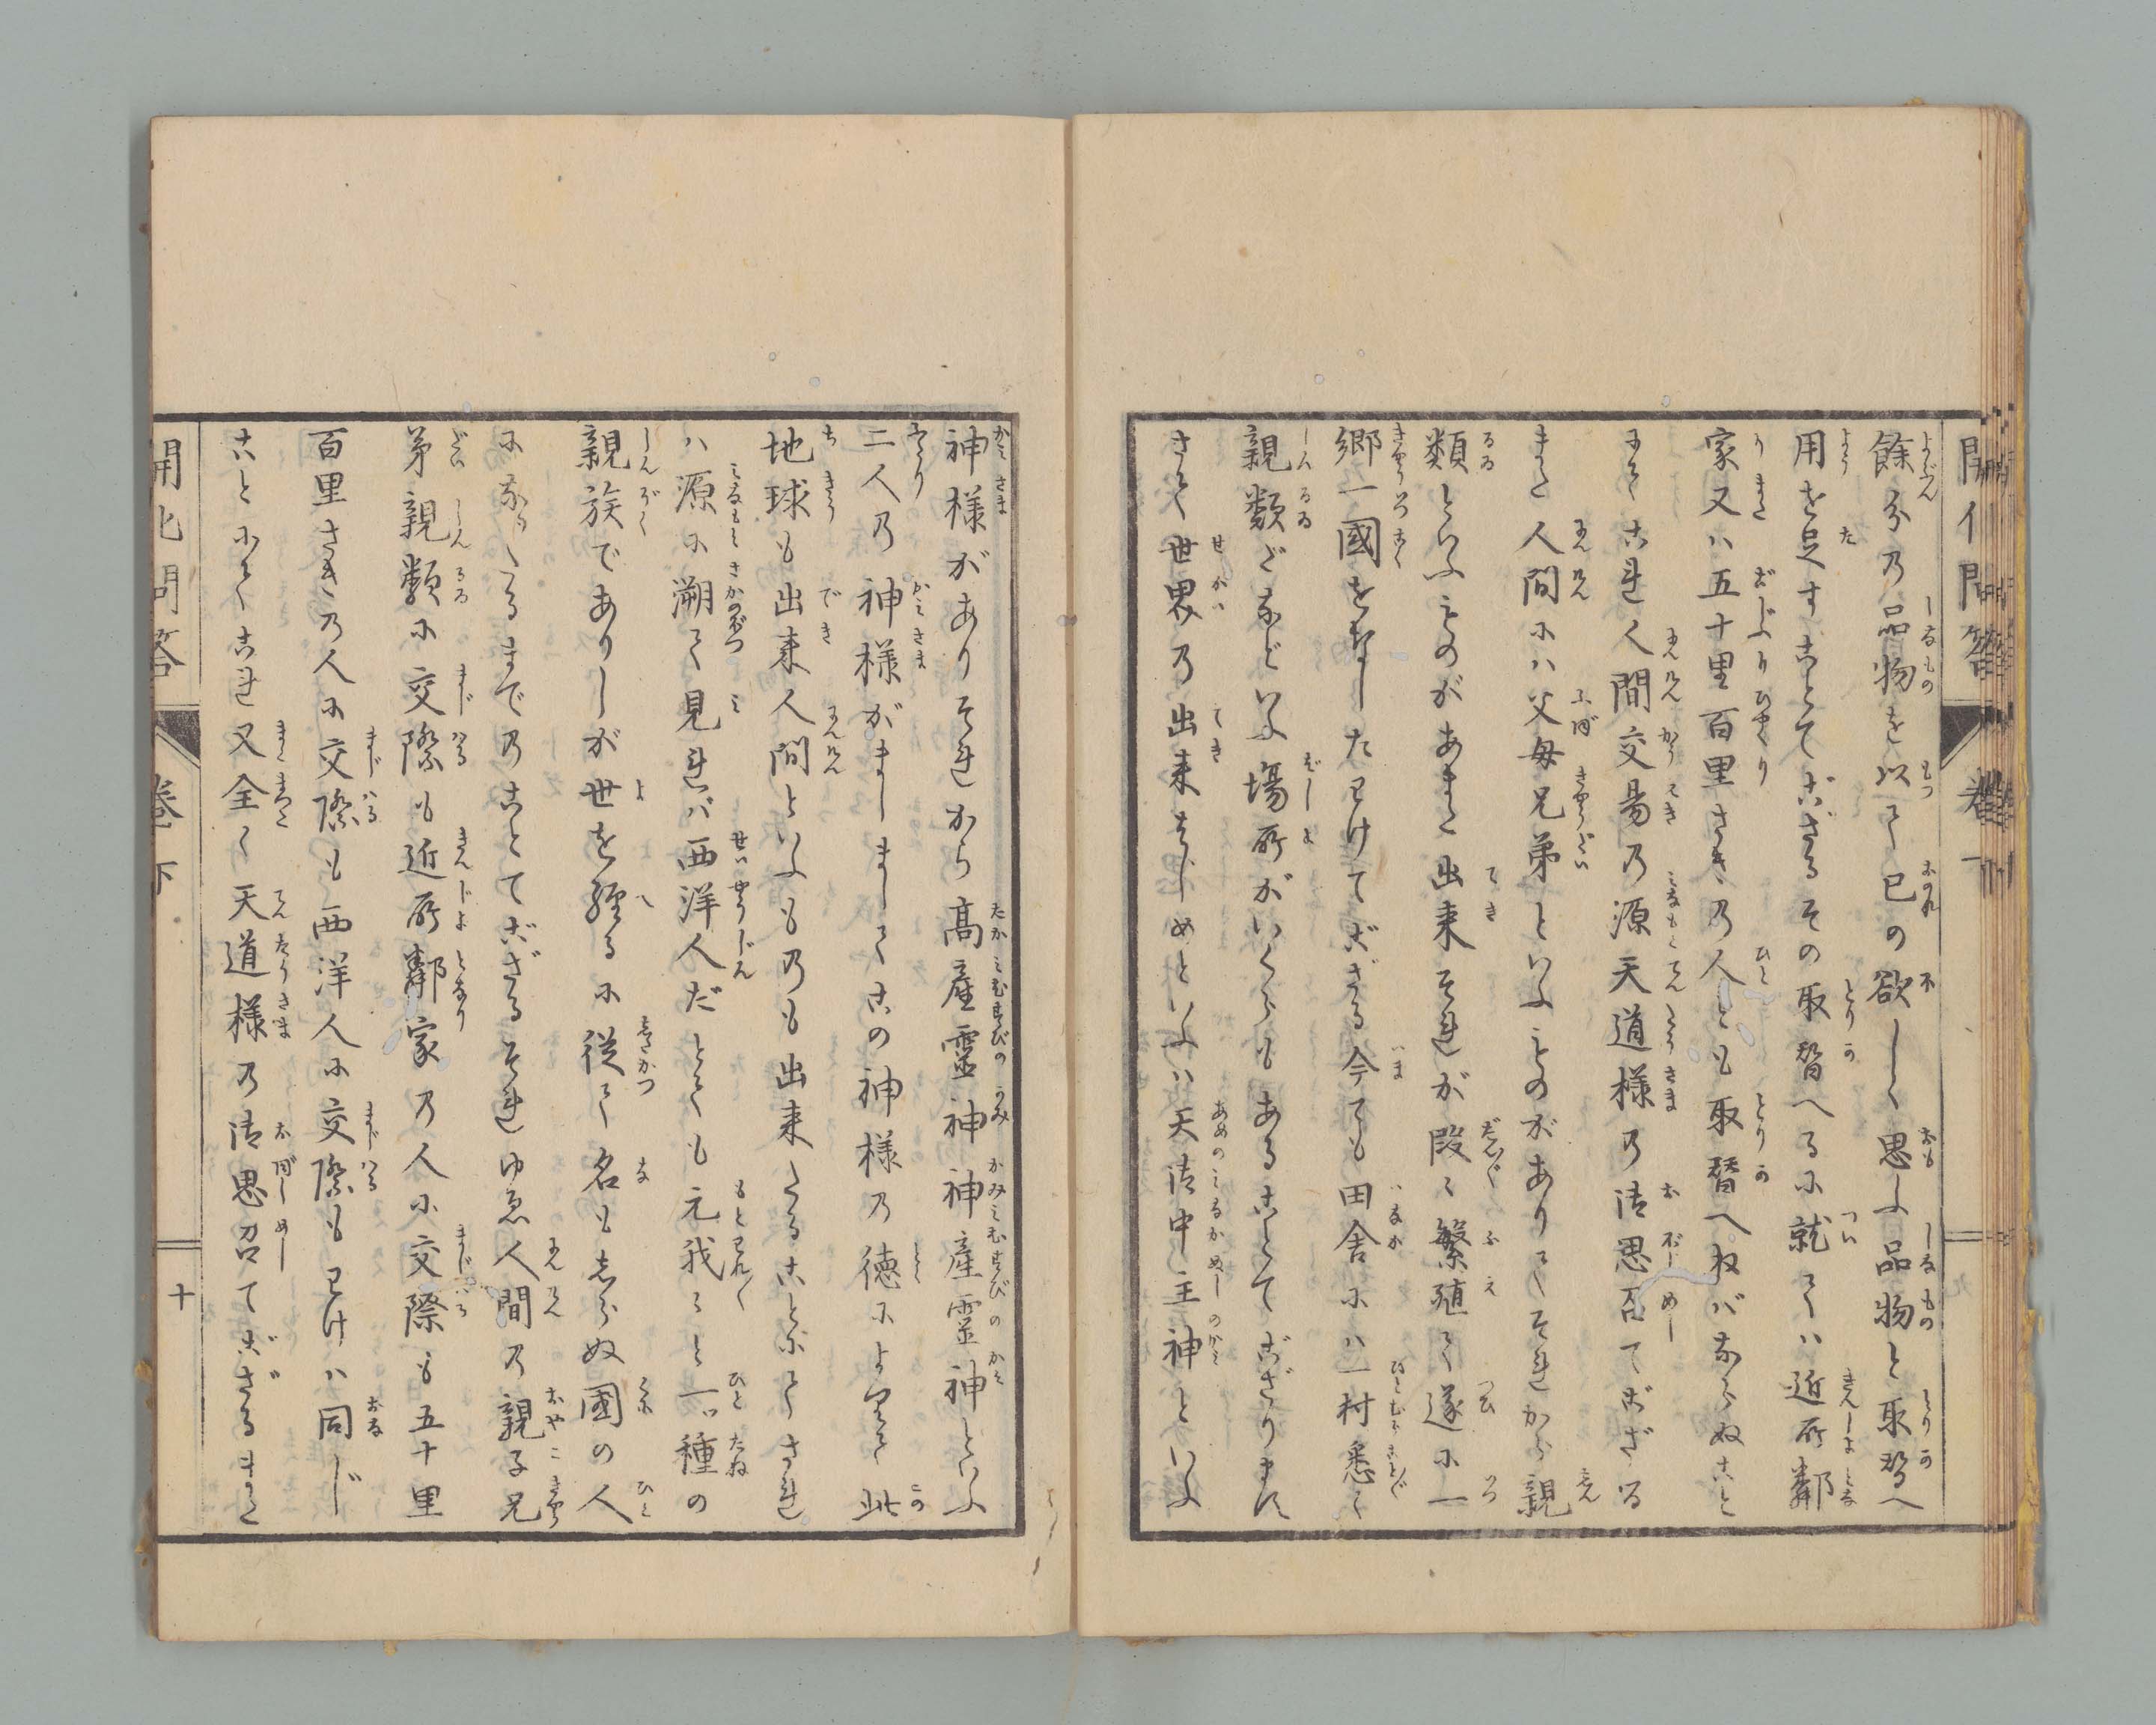 餘分の品物を以て己の欲しく思ふ品物と取替へ
用を足すことでござるその取替へるに就ては近所鄰
家又ハ五十里百里さきの人とも取替へねバならぬこと
にてこれ人間交易の源天道様の御思召でござる
また人間にハ父母兄弟といふものがありてそれから親
類といふものがあまた出来それが段々繁殖て遂に一
郷一國をなしたわけでござる今でも田舎にハ一村悉く
親類だなどいふ場所がいくらもあることでござります
さて世界の出来はじめといふハ天御中主神といふ
神様がありそれから高産靈神神産靈神といふ
二人の神様がましましてこの神様の徳によりて此
地球も出来人間といふものも出来たることにてされ
バ源に溯て見れバ西洋人だとても元我々と一ッ種の
親族でありしが世を經るに従て名もしらぬ國の人
になりたるまでのことでござるそれゆゑ人間の親子兄
弟親類に交際も近所鄰家の人に交際も五十里
百里さきの人に交際も西洋人に交際もわけハ同じ
ことにてこれ又全く天道様の御思召でござるまた
開化問答
卷下
十